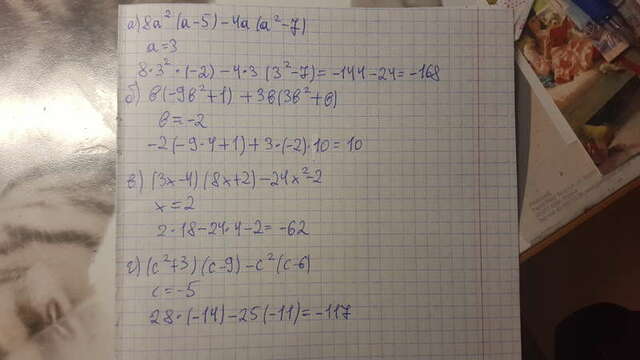 а) 8a²(a-5)-4a(a²-7)
a=3
8·3²·(-2)-4·3(3²-7)=-144-24=-168
б) b(-9b²+1)+3b(3b²+b)
b=-2
-2(-9·4+1)+3·(-2)·10=10
в) (3x-4)(8x+2)-24x²-2
x=2
2·18-24·4-2=-62
г) (c²+3)(c-9)-c²(c-6)
c=-5
28·(-14)-25(-11)=-117